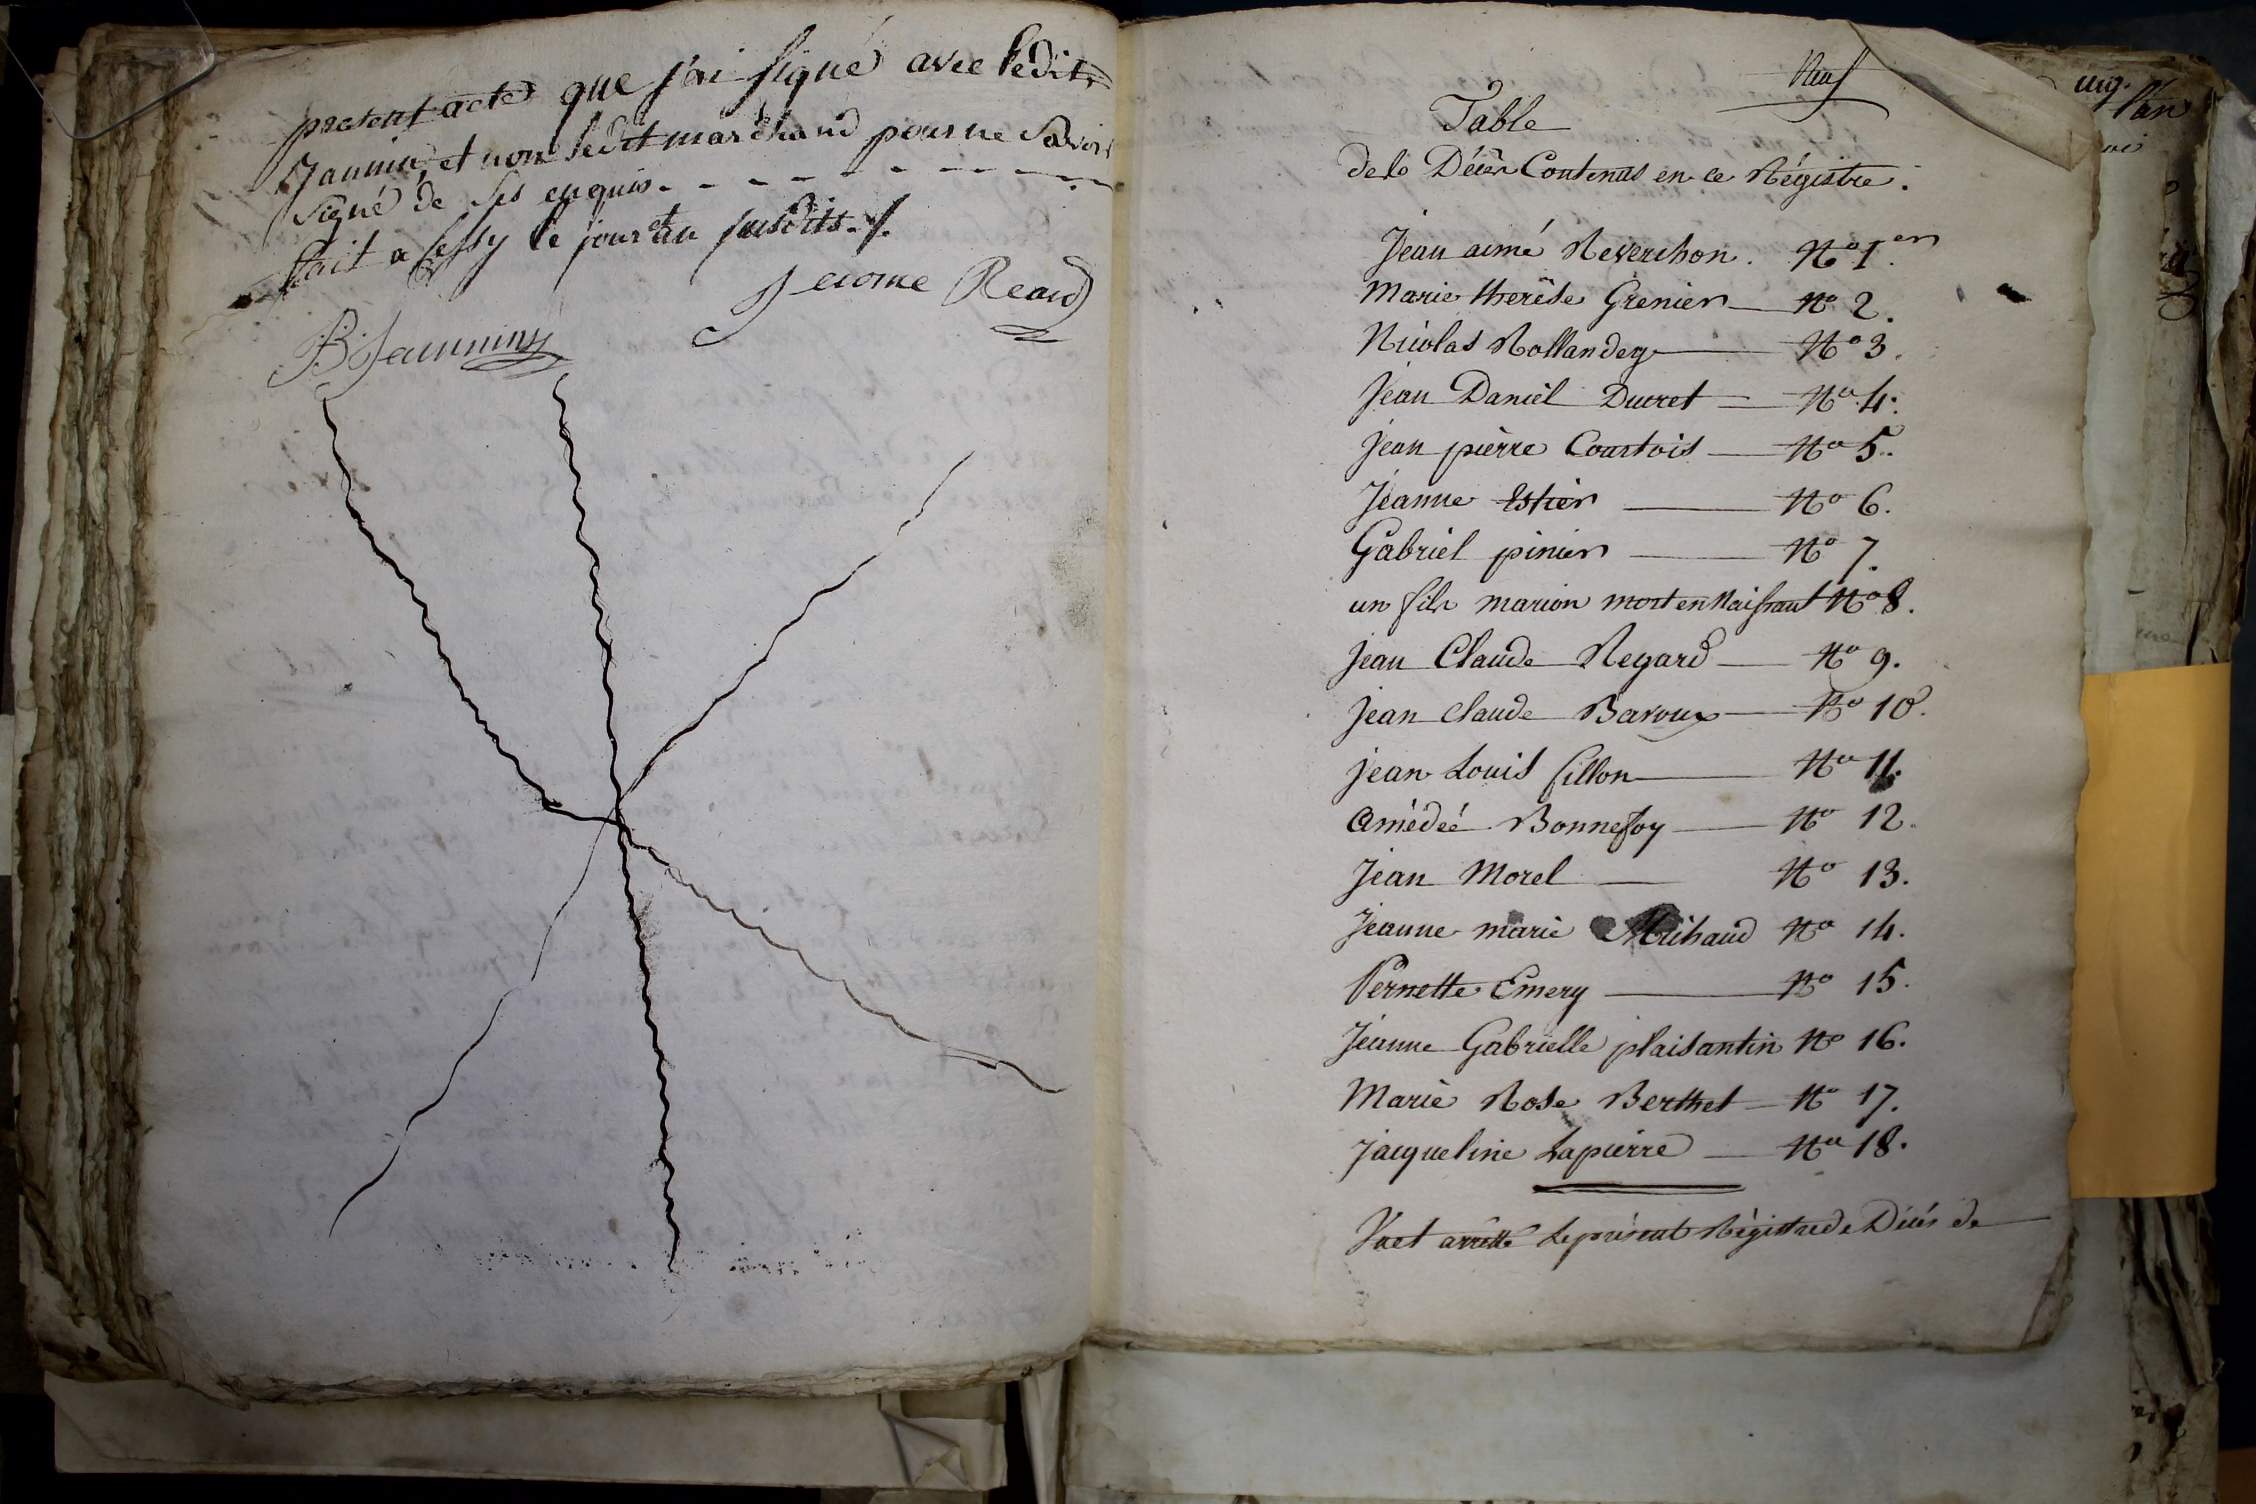 present acte que j'ai signé avec ledit
Jannin, et non ledit marchand pour ne savoir
signé de ses enquis
fait a Cessy le jour et an susdits ./.
Jerome Reard
B. Jeannin
Neuf
Table
de Décès Contenus en ce Régistre.
Jean aimé Reverchon. No 1er
Marie therêse Grenier No 2.
Nicolas Rollandez No 3.
Jean Daniel Ducret No 4.
Jean pièrre Courtois No 5.
Jeanne Estier No 6.
Gabriel pinier No 7.
un fils marion mort en Naissant No 8.
Jean Claude Regard No 9.
Jean Claude Baroux No 10.
Jean Louis fillon No 11.
Amédéé Bonnefoy No 12.
Jean Morel No 13.
Jeanne marie Michaud No 14.
Pernette Emery No 15.
Jeanne Gabrielle plaisantin No 16.
Marie Rose Berthet No 17.
Jacqueline Lapierre No 18.
Vu et arretté le présent Régistre de Décés de